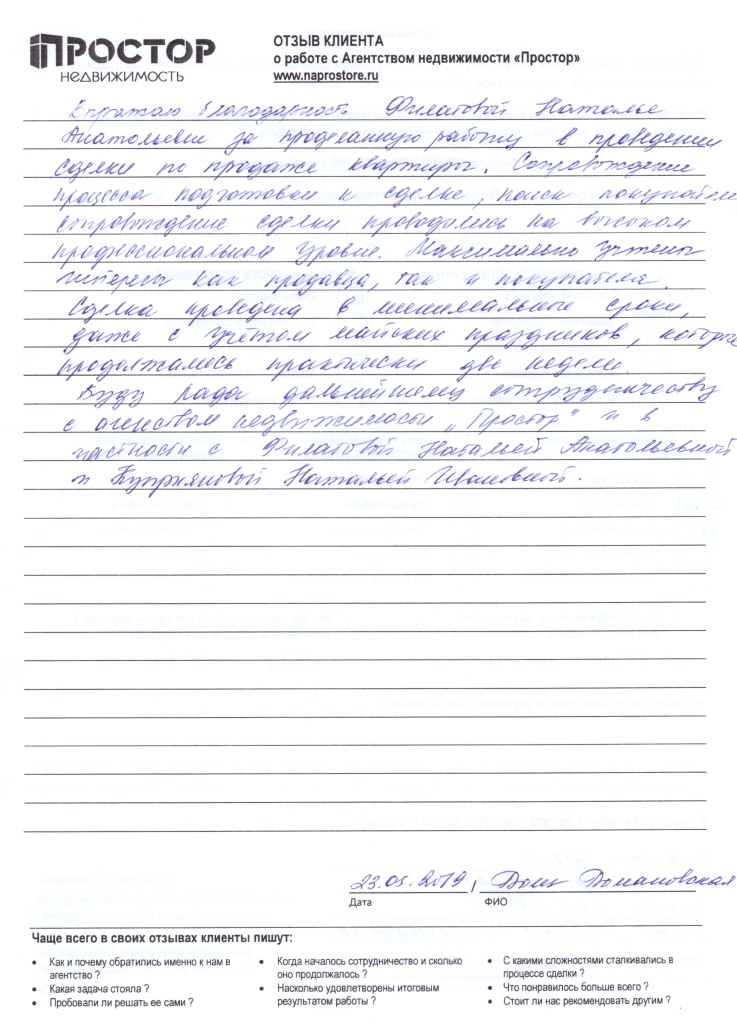 ПРОСТОР
НЕДВИЖИМОСТЬ
ОТЗЫВ КЛИЕНТА
о работе с Агентством недвижимости «Простор»
www.naprostore.ru
Выражаю благодарность Филатовой Наталье
Анатольевне за проделанную работу в проведении
сделки по продаже квартиры. Сопровождение
процесса подготовки к сделке, поиск покупателей
сопровождение сделки проводились на высоком
профессиональном уровне. Максимально учтены
интересы как продавца, так и покупателя.
Сделка проведена в минимальные сроки,
даже с учётом майских праздников, которые
продолжались практически две недели.
Буду рада дальнейшему сотрудничеству
с агенством недвижимости „Простор" и в
частности с Филатовой Натальей Анатольевной
и Куприяновой Натальей Ивановной.
23.05.2019 / Домановская
Дата ФИО
Чаще всего в своих отзывах клиенты пишут:
• Как и почему обратились именно к нам в
агентство ?
• Какая задача стояла ?
• Пробовали ли решать ее сами ?
• Когда началось сотрудничество и сколько
оно продолжалось ?
• Насколько удовлетворены итоговым
результатом работы ?
• С какими сложностями сталкивались в
процессе сделки ?
• Что понравилось больше всего ?
• Стоит ли нас рекомендовать другим ?